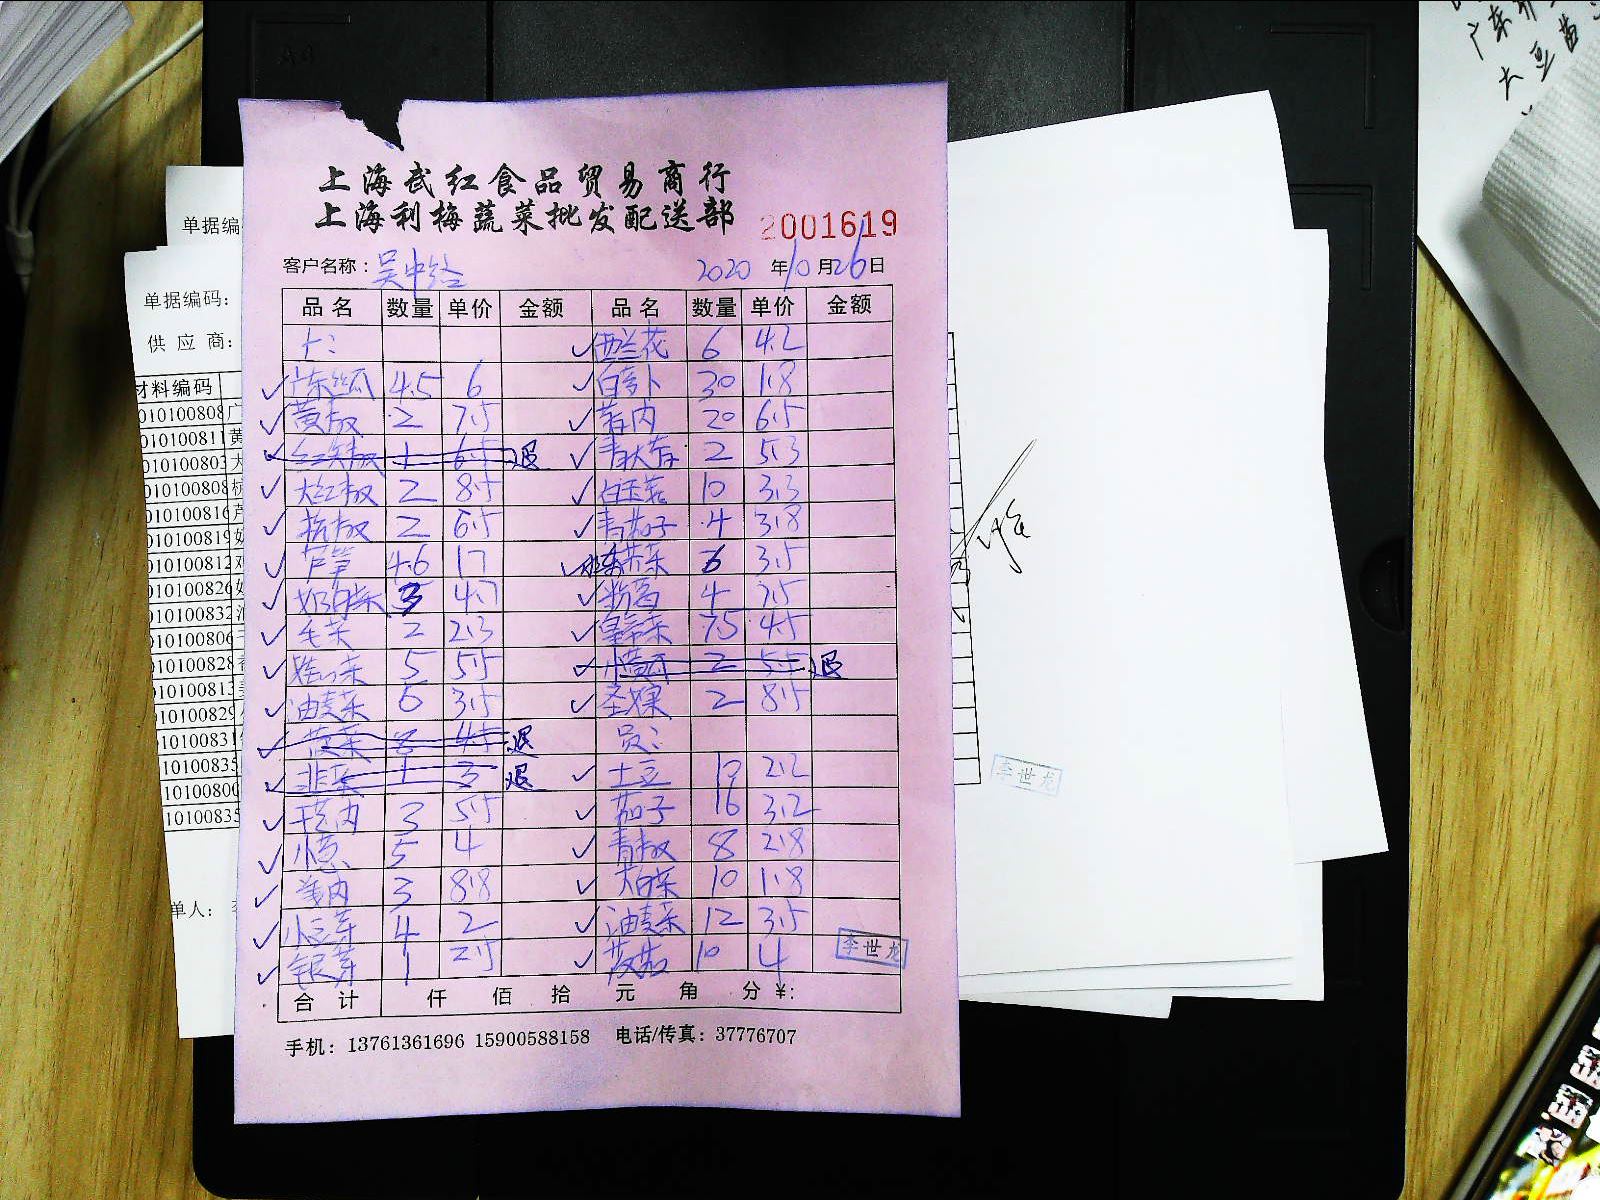 广东
大豆苗
上海武红食品贸易商行
上海利梅蔬菜批发配送部
2001619
单据编
客户名称：吴中路 2020年10月26日
单据编码：
供应商：
品名 数量 单价 金额 品名 数量 单价 金额
西兰花 6 4.2
材料编码
广东丝瓜 4.5 6 白萝卜 30 1.8
010100808 广
黄椒 2 7.5 20 6.5
010100811 黄
红尖椒 1 6.5 退 青大蒜 2 5.3
010100803 大
大红椒 2 8.5 白玉菇 10 3.3
010100808 杭
杭椒 2 6.5 青茄子 4 3.8
010100816 芦
芦笋 4.6 17 6 3.5
010100819 奶
奶白菜 3 4.7 4
010100812
毛菜 2 2.3 皇帝菜 7.5 4.5
010100826
娃娃菜 5 5.5 小黄瓜 2 5.5 退
010100832 油
油麦菜 6 3.5 圣女果 2 8.5
010100806
菠菜 4.5 退 员：
010100828 香
韭菜 1 3 退 土豆 10 2.2
010100813
3 5.5 茄子 16 3.2
010100829
小葱 5 4 青椒 8 2.8
010100831
3 8.8 大白菜 10 1.8
10100835
4 2 油麦菜 12 3.5
1010080
银芽 1 2.5 10 4
10100835
单人：
李世龙
李世龙
合计 仟 佰 拾 元 角 分 ￥：
手机：13761361696 15900588158 电话/传真：37776707